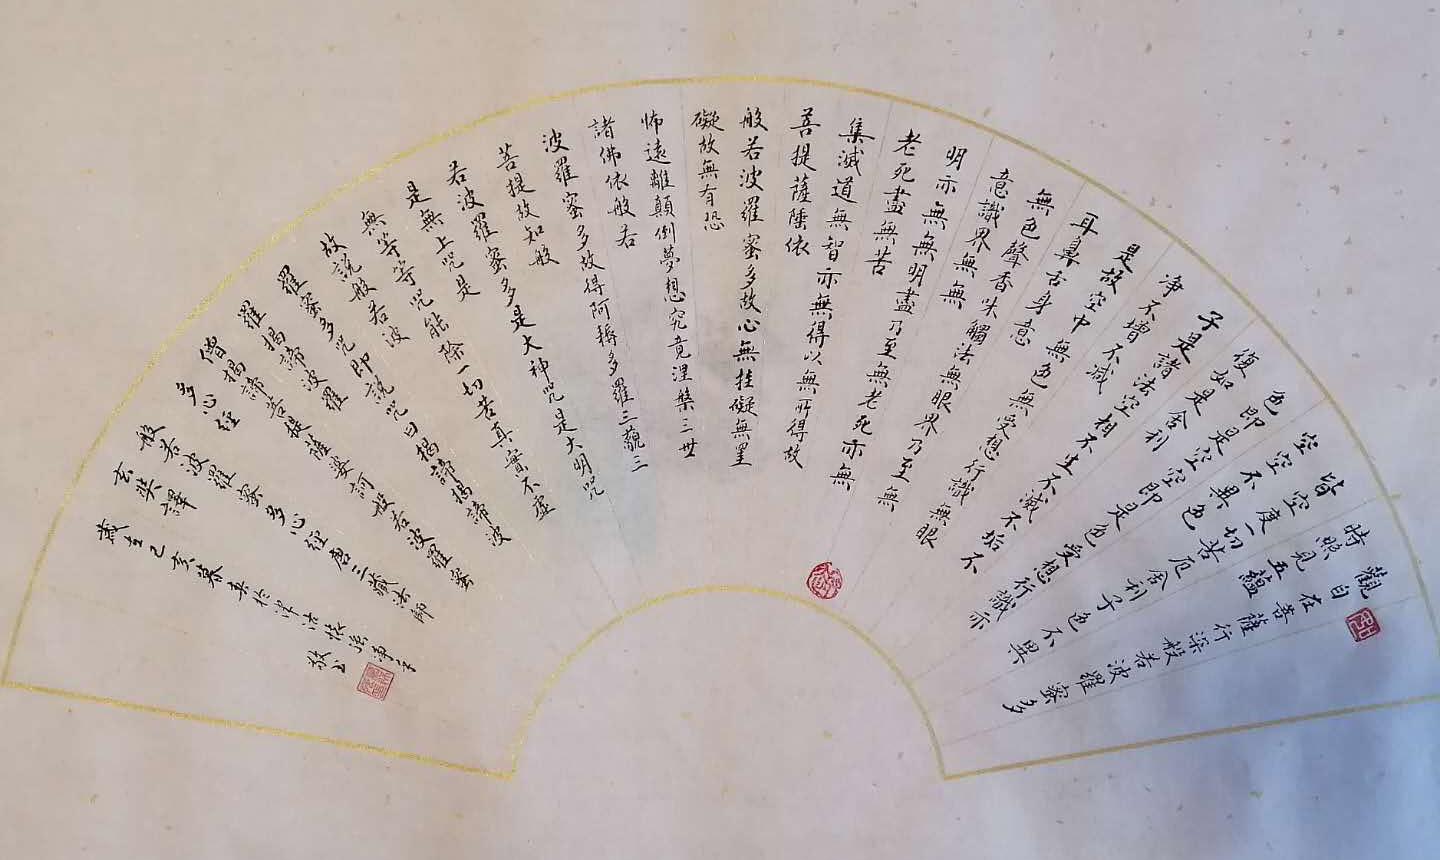 觀自在菩薩行深般若波羅蜜多
時照見五蘊
皆空度一切苦厄舍利子色不異
空空不異色
色即是空空即是色受想行識亦
復如是舍利
子是諸法空相不生不滅不垢不
淨不增不減
是故空中無色無受想行識無眼
耳鼻舌身意
無色聲香味觸法無眼界乃至無
意識界無無
明亦無無明盡乃至無老死亦無
老死盡無苦
集滅道無智亦無得以無所得故
菩提薩埵依
般若波羅蜜多故心無挂礙無罣
礙故無有恐
怖遠離顛倒夢想究竟涅槃三世
諸佛依般若
波羅蜜多故得阿耨多羅三藐三
菩提故知般
若波羅蜜多是大神咒是大明咒
是無上咒是
無等等咒能除一切苦真實不虛
故說般若波
羅蜜多咒即說咒曰揭諦揭諦波
羅揭諦波羅
僧揭諦菩提薩婆訶般若波羅蜜
多心經
般若波羅蜜多心經唐三藏法師
玄奘譯
歲在己亥暮春於
敬書